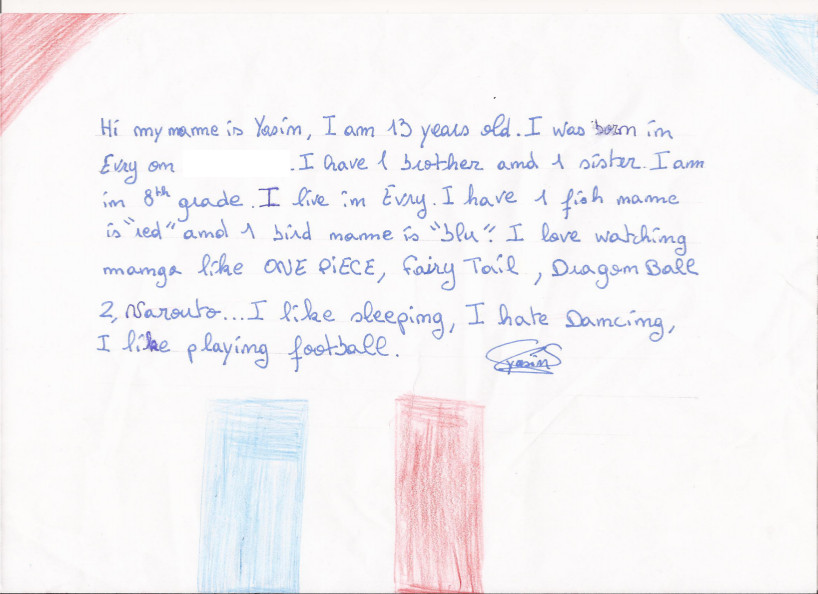 Hi my name is Yasin, I am 13 years old. I was born in
Evry on . I have 1 brother and 1 sister. I am
in 8th grade. I live in Evry. I have 1 fish name
is "red" and 1 bird name is "blu". I love watching
manga like ONE PiECE, Fairy Tail, Dragon Ball
2, Narouto... I like sleeping, I hate Dancing,
I like playing football.
Yasin